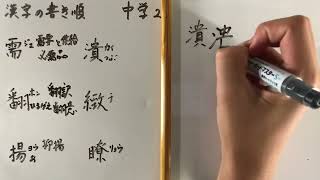 漢字の書き順 中学2
需 ジュ 需要と供給 必需品 潰 かい つぶ
翻 ホン ひるがえ 翻訳 翻意 緻 チ
揚 ヨウ あ 抑揚 瞭 リョウ
潰 沖